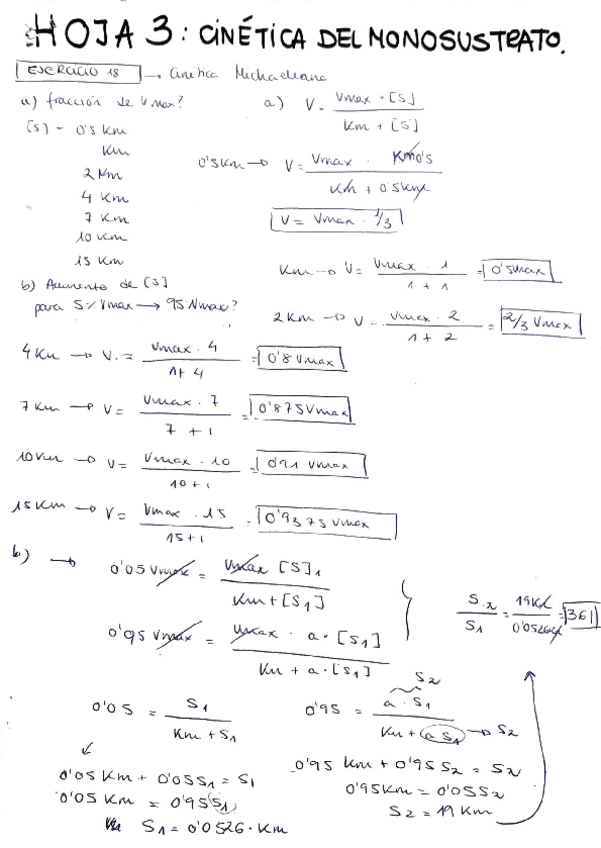 HOJA 3: CINÉTICA DEL MONOSUSTRATO.
EJERCICIO 18 → Cinética Michaeliana
a) fracción de Vmax?
[S] = 0'5 Km
Km
2 Km
4 Km
7 Km
10 Km
15 Km
b) Aumento de [S]
para 5% Vmax → 95% Vmax?
a) V = Vmax · [S] / Km + [S]
0'5 Km → V = Vmax · Km 0'5 / Km + 0'5 Km
V = Vmax · 1/3
Km → V = Vmax · 1 / 1 + 1 = 0'5 Vmax
2 Km → V = Vmax · 2 / 1 + 2 = 2/3 Vmax
4 Km → V = Vmax · 4 / 1 + 4 = 0'8 Vmax
7 Km → V = Vmax · 7 / 7 + 1 = 0'875 Vmax
10 Km → V = Vmax · 10 / 10 + 1 = 0'91 Vmax
15 Km → V = Vmax · 15 / 15 + 1 = 0'9375 Vmax
b) → 0'05 Vmax = Vmax [S]1 / Km + [S1]
0'95 Vmax = Vmax · a · [S1] / Km + a · [S1]
S2 / S1 = 19 Km / 0'0526 Km = 361
0'05 = S1 / Km + S1
0'05 Km + 0'05 S1 = S1
0'05 Km = 0'95 S1
S1 = 0'0526 · Km
S2
0'95 = a · S1 / Km + a S1 → S2
0'95 Km + 0'95 S2 = S2
0'95 Km = 0'05 S2
S2 = 19 Km